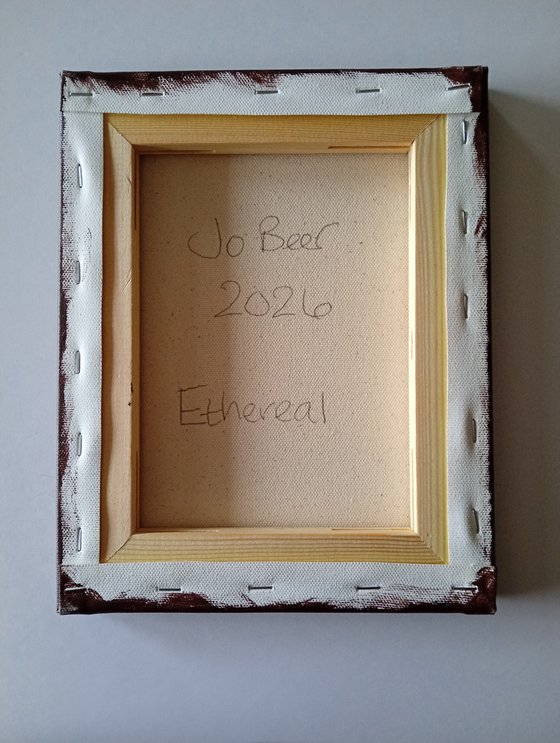 Jo Beer
2026
Ethereal